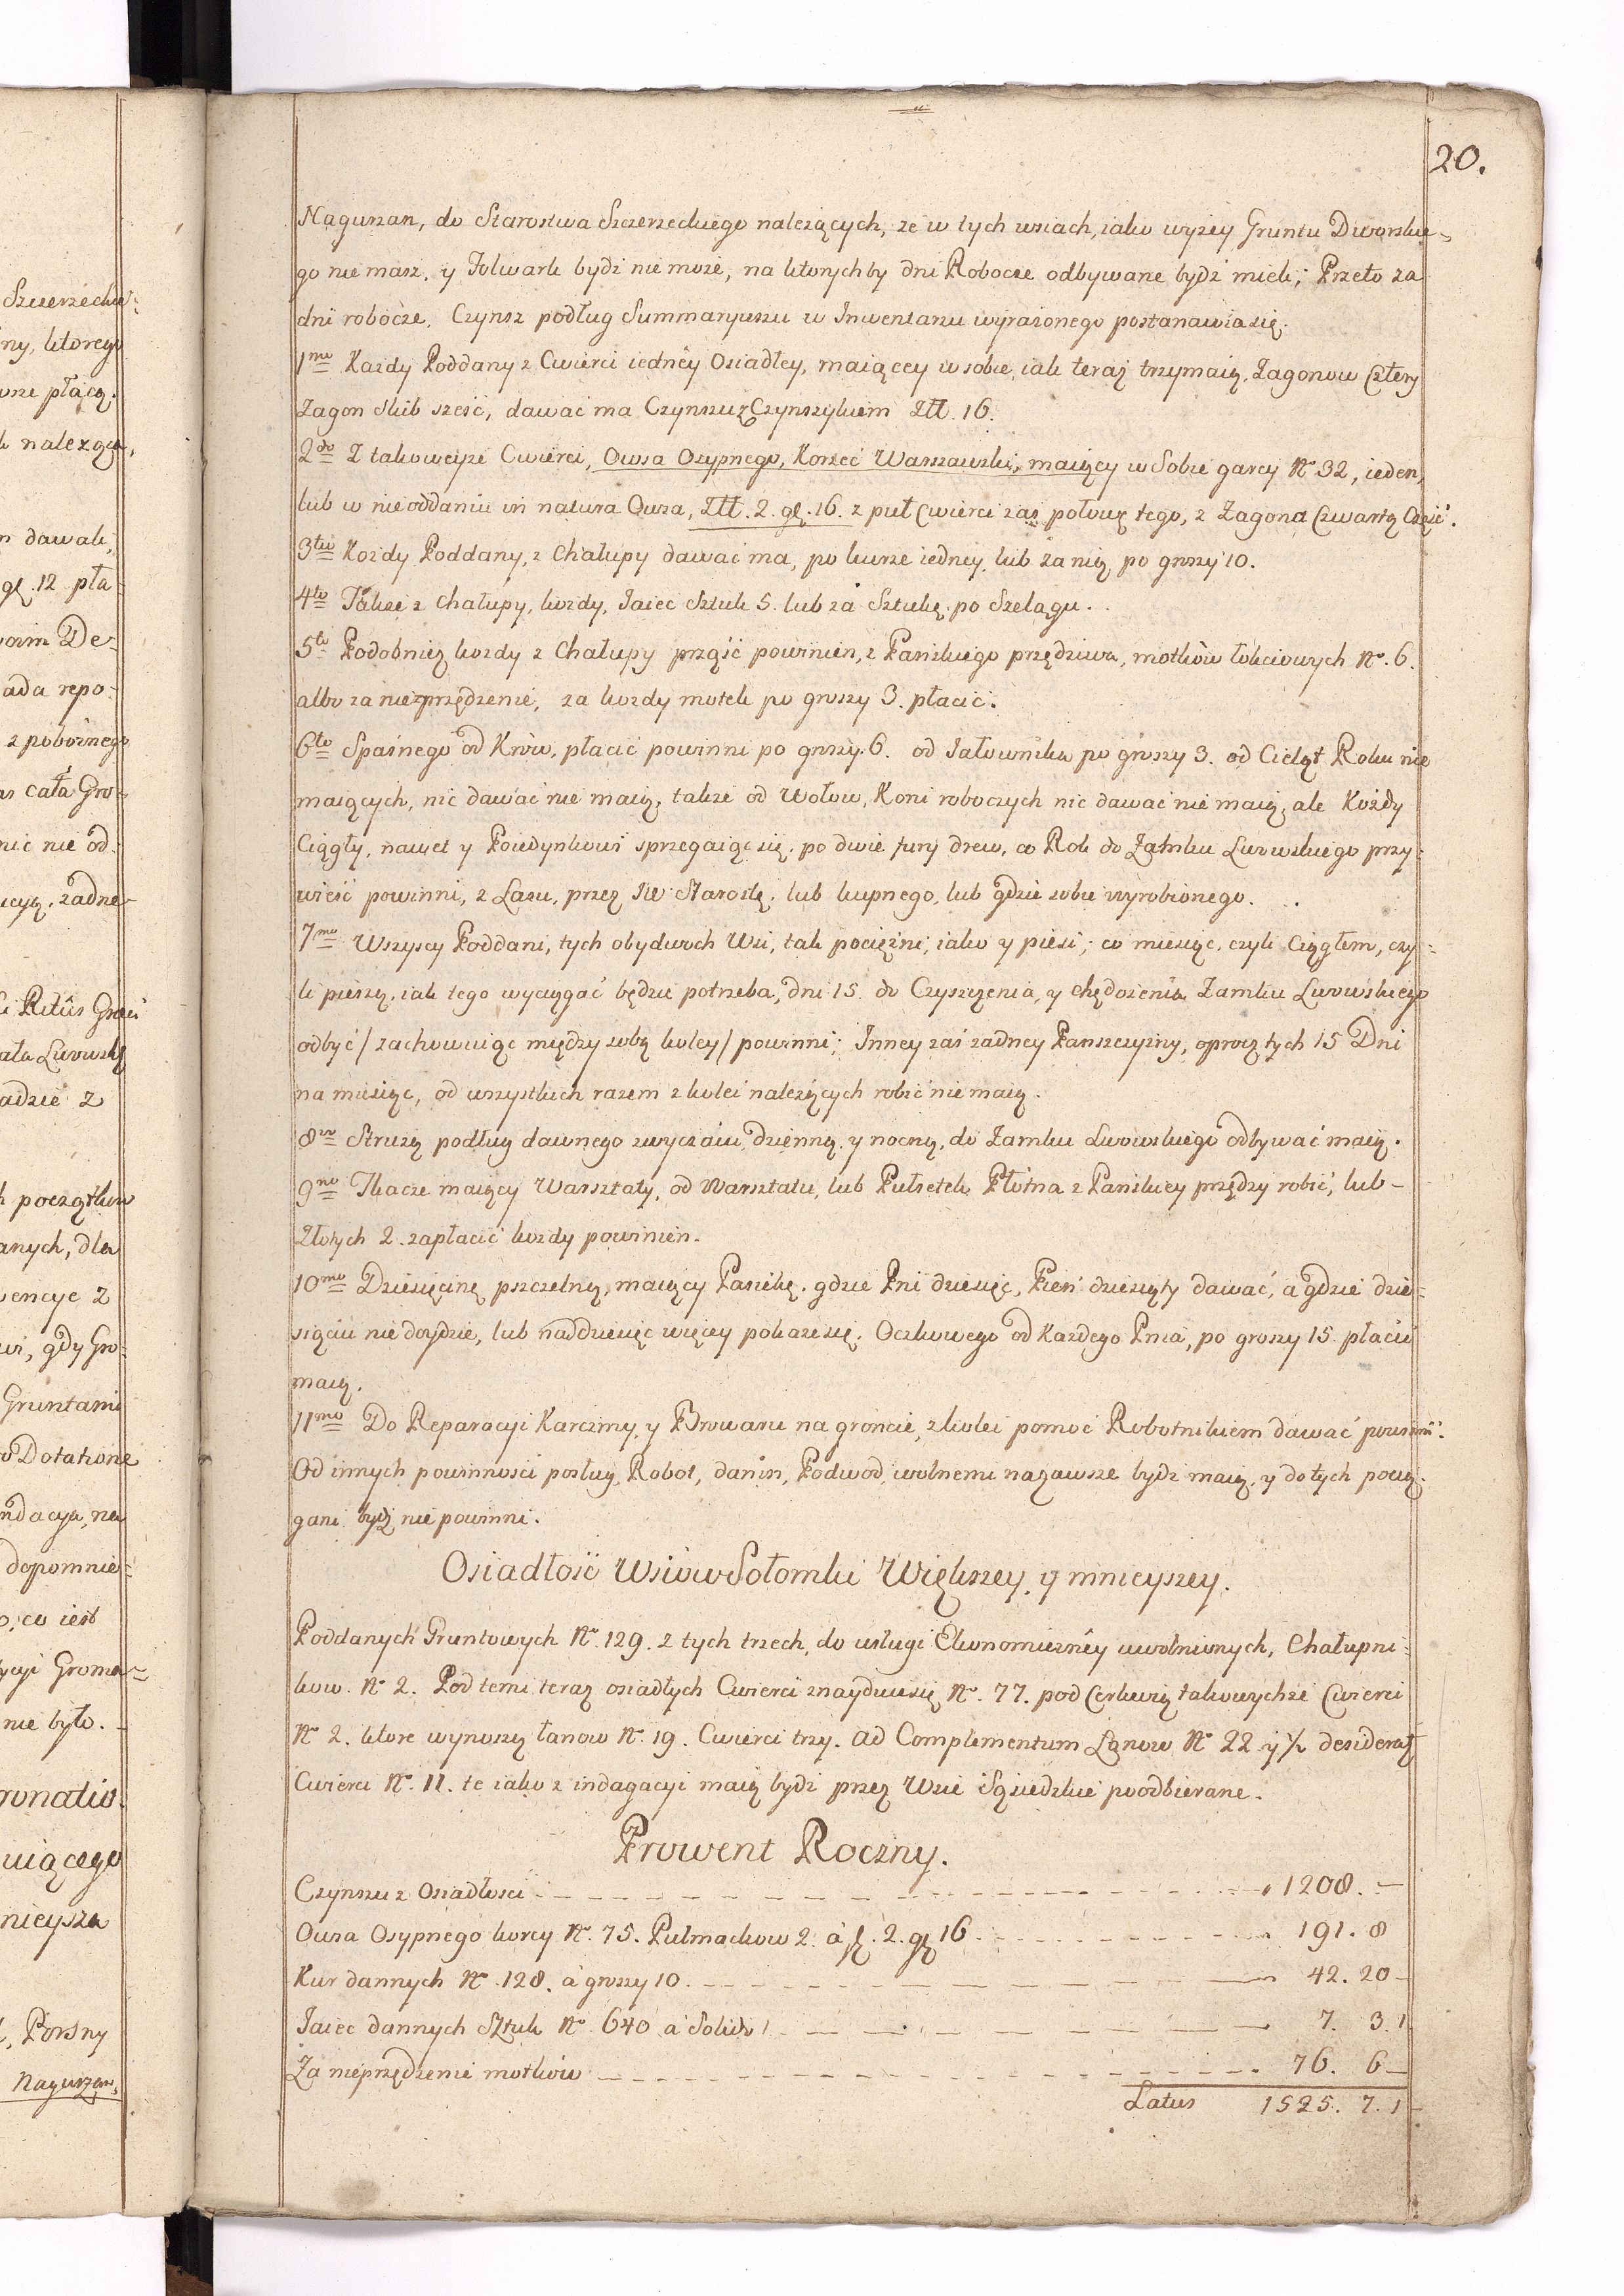 20.
Nagurzan, do Starostwa Szczerzeckiego należących, że w tych wsiach, iako wyżey Gruntu Dworskie-
go nie masz, y Folwark bydź nie może, na ktorychby dni Robocze odbywane bydź mieli; Przeto za
dni robocze, Czynsz podług Summaryuszu w Inwentarzu wyrażonego postanawia się.
1mo Każdy Poddany z Cwierci iedney Osiadłey, maiącey w sobie, iak teraz trzymaią, Zagonow Cztery
Zagon skib sześć, dawać ma Czynszu z Czynszykiem Złł. 16.
2do Z takoweyże Cwierci, Owsa Osypnego, Korzec Warszawski, maiący w Sobie garcy No 32, ieden,
lub w nieoddaniu in natura Owsa, Złł. 2. gr. 16. z puł Cwierci zaś połowę tego, z Zagona Czwartą Część.
3tio Kożdy Poddany, z Chałupy dawać ma, po kurze iedney, lub za nię po groszy 10.
4to Także z Chałupy, kożdy, Iaiec Sztuk 5. lub za Sztukę po Szelągu.
5to Podobnież kożdy z Chałupy prząść powinien, z Pańskiego przędziwa, motków łokciowych No. 6.
albo za niezprzędzenie, za kożdy motek po groszy 3. płacić.
6to Spaśnego od Krów, płacić powinni po groszy 6. od Iałownika po groszy 3. od Cieląt Roku nie
maiących, nic dawać nie maią, także od Wołow, Koni roboczych nic dawać nie maią, ale Kożdy
Ciągły, nawet y Poiedynkowi sprzęgaiąc się, po dwie fury drew, co Rok do Zamku Lwowskiego przy-
wieść powinni, z Lasu, przez JW Starostę, lub kupnego, lub gdzie sobie wyrobionego.
7mo Wszyscy Poddani, tych obydwoch Wsi, tak pociężni, iako y piesi, co miesiąc, czyli Ciągłem, czy-
li pieszą, iak tego wyciągać będzie potrzeba, dni 15. do Czyszczenia, y chędożenia Zamku Lwowskiego
odbyć / zachowuiąc między sobą koley / powinni; Inney zaś żadney Panszczyzny, oprocz tych 15 Dni
na miesiąc, od wszystkich razem z kolei należących robić nie maią.
8vo Strużą podług dawnego zwyczaiu, dzienną y nocną, do Zamku Lwowskiego odbywać maią.
9no Tkacze maiący Warsztaty, od Warsztatu, lub Pułsetek Płótna z Pańskiey przędzy robić, lub-
Złotych 2. zapłacić kożdy powinien.
10mo Dziesięcinę pszczelną, maiący Pasiekę, gdzie Pni dziesięć, Pień dziesiąty dawać, a gdzie dzie-
sięciu nie doydzie, lub nad dziesięć więcey pokaże się, Oczkowego od Każdego Pnia, po groszy 15 płacić
maią.
11mo Do Reparacyi Karczmy, y Browaru na groncie, z kolei pomoc Robotnikiem dawać powinni.
Od innych powinności posług, Robot, danin, Podwod, wolnemi na zawsze bydź maią, y do tych pocią-
gani bydź nie powinni.
Osiadłość Wsiów Sołomki Większey, y mnieyszey.
Poddanych Gruntowych No. 129. z tych trzech, do usługi Ekonomiczney uwolnionych, Chałupni-
kow. No 2. Pod temi teraz osiadłych Cwierci znayduie się No. 77. pod Cerkwią takowychże Cwierci
No 2. ktore wynoszą łanow No. 19. Cwierci trzy. ad Complementum Łanow No 22 y 1/2 desiderat
Cwierci No. 11. te iako z indagacyi maią bydź przez Wsie Sąsiedzkie poodbierane.
Prowent Roczny.
Czynszu z Osiadłości 1208. —
Owsa Osypnego korcy No. 75. Pułmackow 2. à fl. 2. gr 16 191. 8
Kur dannych No. 128. à groszy 10. 42. 20
Iaiec dannych Sztuk No. 640 a Solid 1 7. 3. 1
Za nieprzędzenie motków 76. 6
Latus 1525. 7. 1